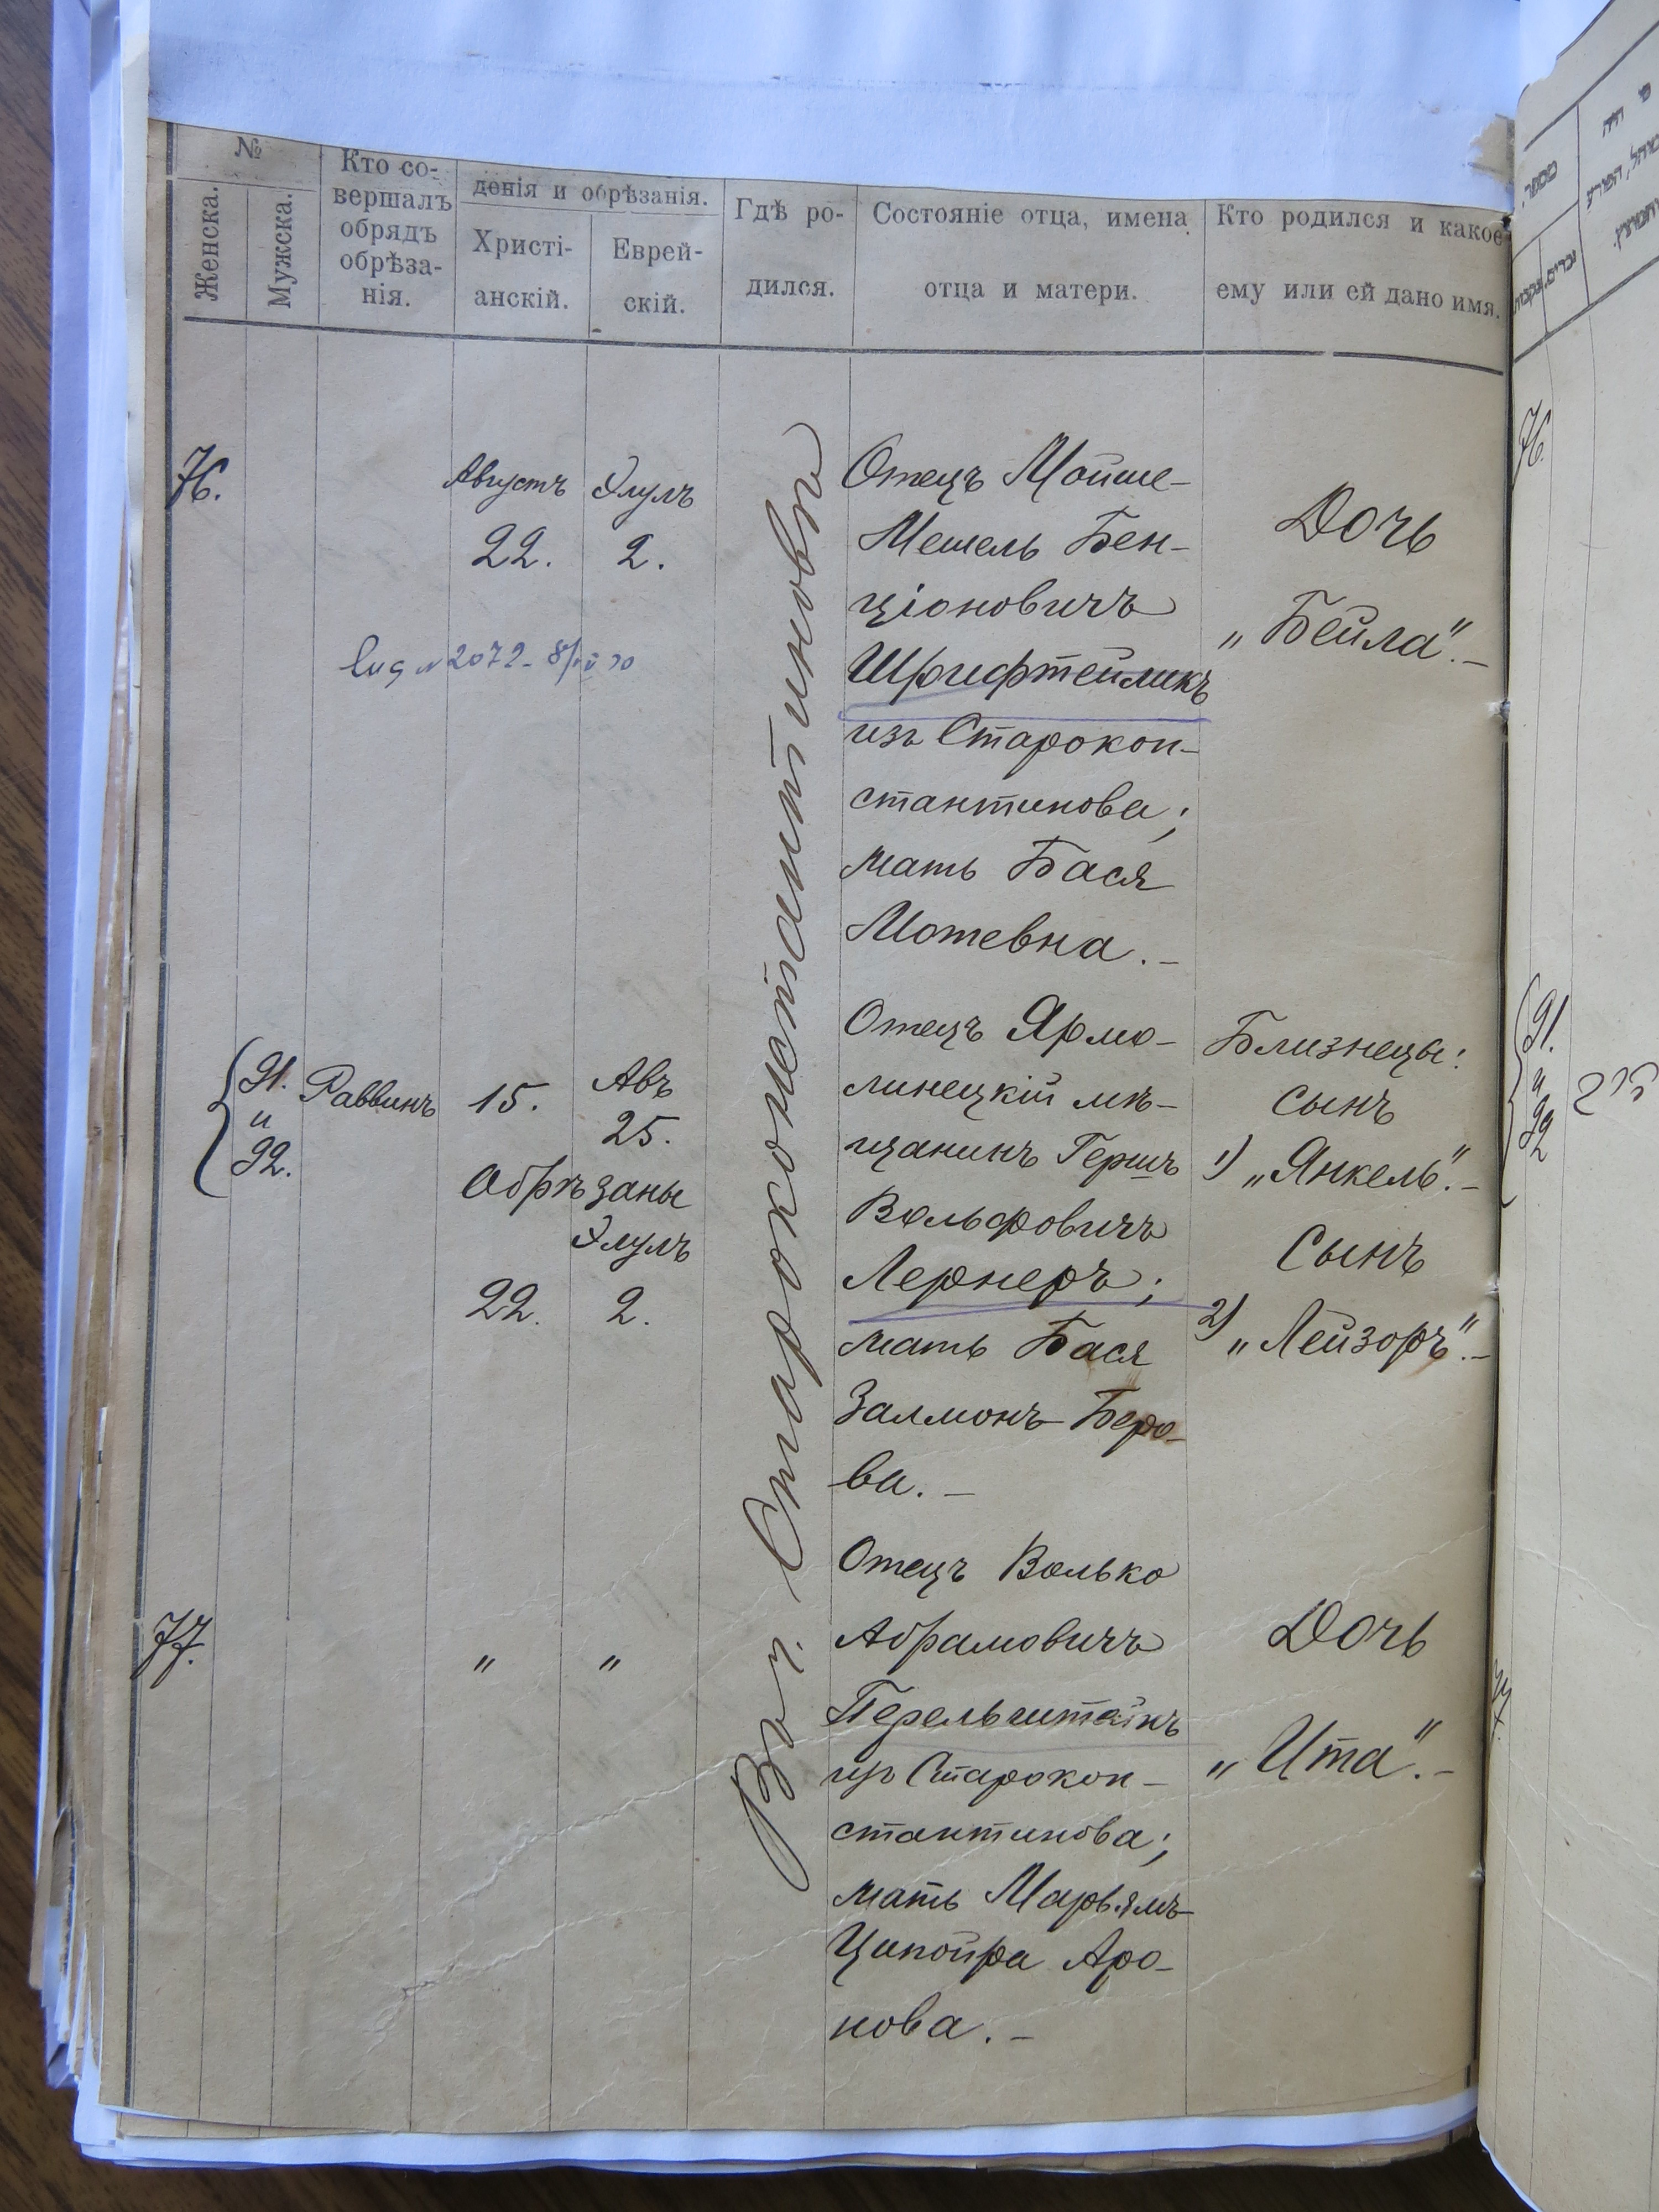 №
Женска.
Мужска.
Кто со-
вершалъ
обрядъ
обрѣза-
нія.
денія и обрѣзанія.
Христі-
анскій.
Еврей-
скій.
Гдѣ ро-
дился.
Состояніе отца, имена
отца и матери.
Кто родился и какое
ему или ей дано имя.
76.
Августъ
22.
Элулъ
2.
2072
Въ г. Старокопстантиновѣ
Отецъ Мойше-
Мешель Бен-
ціоновичъ
Шрифтейликъ
изъ Старокон-
стантинова;
мать Бася
Мотевна.-
Дочь
„Бейла".-
91.
и
92.
Раввинъ
15.
Авъ
25.
Обрѣзаны
Элулъ
22.
2.
Отецъ Ярмо-
линецкій мѣ-
щанинъ Гершъ
Вольфовичъ
Лернеръ;
мать Бася
Залмонъ-Беро-
ва.-
Близнецы:
сынъ
1) „Янкель".-
Сынъ
2) „Лейзоръ".-
77.
"
"
Отецъ Волько
Абрамовичъ
Перельштейнъ
изъ Старокон-
стантинова;
мать Марьямъ-
Ципойра Аро-
нова.-
Дочь
„Ита".-
76.
91.
и
92
77.